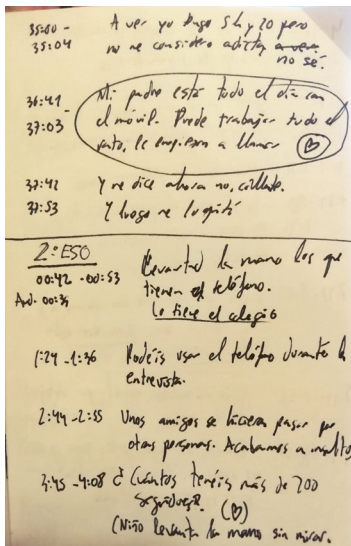 35:00 - A ver yo tengo 5 h y 20 pero
35:04 no me considero adicta a ver
no sé.
36:41 - Mi padre está todo el día con
37:03 el móvil. Puede trabajar todo el
rato, le empiezan a llamar
37:42 Y me dice ahora no, cállate.
37:53 Y luego me lo quitó
2º ESO
00:42 - 00:53 Levantad la mano los que
tienen el teléfono.
And. 00:34 Lo tiene el colegio
1:24 - 1:36 Podéis usar el teléfono durante la
entrevista.
2:44 - 2:55 Unos amigos se hicieron pasar por
otras personas. Acabamos a insultos
3:45 - 4:08 ¿Cuántos tenéis más de 200
seguidores?
(Niño levanta la mano sin mirar.